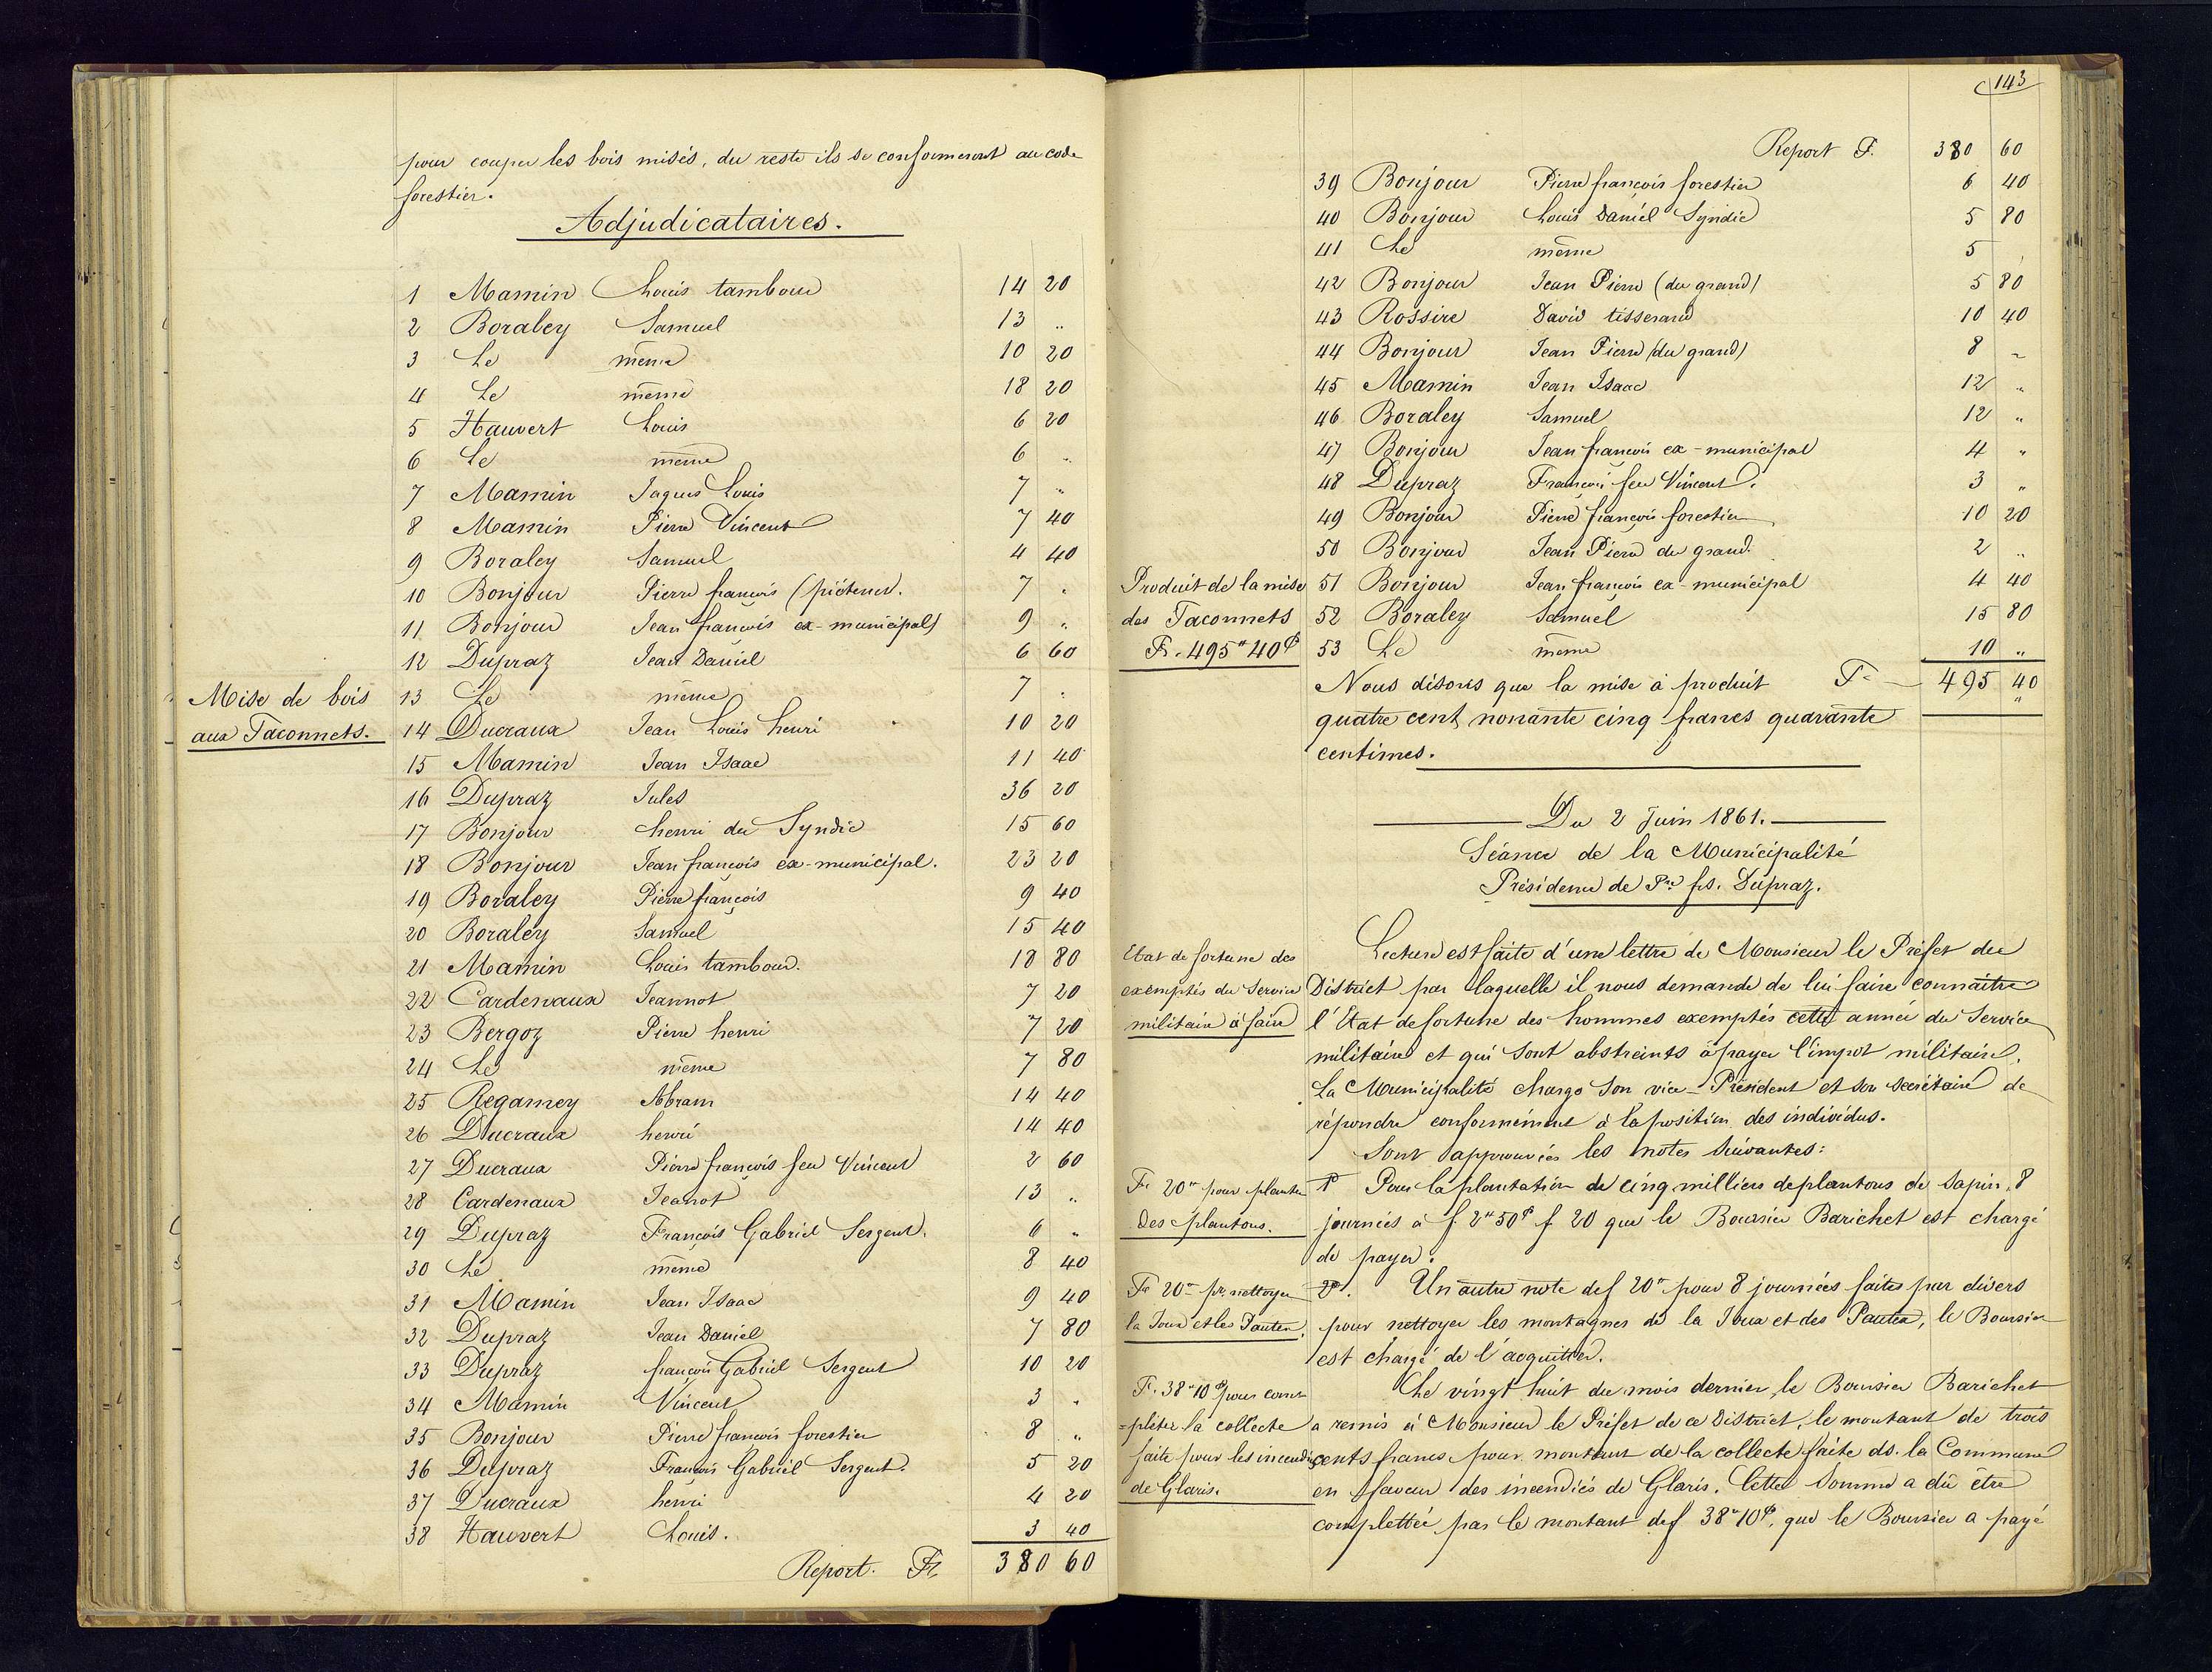 pour couper les bois misés, du reste ils se conformeront au code
forestier.
Adjudicataires.
1 Mamin Louis tambour 14 20
2 Boraley Samuel 13 "
3 Le même 10 20
4 Le même 18 20
5 Hauvert Louis 6 20
6 Le même 6 "
7 Mamin Jaques Louis 7 "
8 Mamin Pierre Vincent 7 40
9 Boraley Samuel 4 40
10 Bonjour Pierre françois (piéteur. 7 "
11 Bonjour Jean françois ex-municipal) 9 "
12 Dupraz Jean Daniel 6 60
Mise de bois
aux Taconnets.
13 Le même 7 "
14 Ducraux Jean Louis henri 10 20
15 Mamin Jean Isaac 11 40
16 Dupraz Jules 36 20
17 Bonjour henri du Syndic 15 60
18 Bonjour Jean françois ex-municipal. 23 20
19 Boraley Pierre françois 9 40
20 Boraley Samuel 15 40
21 Mamin Louis tambour. 18 80
22 Cardenaux Jeannot 7 20
23 Bergoz Pierre henri 7 20
24 Le même 7 80
25 Regamey Abram 14 40
26 Ducraux henri 14 40
27 Ducraux Pierre françois feu Vincent 2 60
28 Cardenaux Jeanot 13 "
29 Dupraz François Gabriel Sergent. 6 "
30 Le même 8 40
31 Mamin Jean Isaac 9 40
32 Dupraz Jean Daniel 7 80
33 Dupraz françois Gabriel Sergent 10 20
34 Mamin Vincent 3 "
35 Bonjour Pierre françois forestier 8 "
36 Dupraz François Gabriel Sergent. 5 20
37 Ducraux henri 4 20
38 Hauvert Louis. 3 40
Report. Fr. 380 60
143
Report F. 380 60
39 Bonjour Pierre françois forestier 6 40
40 Bonjour Louis Daniel Syndic 5 80
41 Le même 5
42 Bonjour Jean Pierre (du grand) 5 80
43 Rossire David tisserand 10 40
44 Bonjour Jean Pierre (du grand) 8 "
45 Mamin Jean Isaac 12 "
46 Boraley Samuel 12 "
47 Bonjour Jean françois ex-municipal 4 "
48 Dupraz François feu Vincent. 3 "
49 Bonjour Pierre françois forestier 10 20
50 Bonjour Jean Pierre du grand. 2 "
Produit de la mise
des Taconnets
Fr. 495" 40 c.
51 Bonjour Jean françois ex-municipal 4 40
52 Boraley Samuel 15 80
53 Le même 10 "
Nous disons que la mise à produit Fr. 495 40
quatre cent nonante cinq francs quarante
centimes.
Du 2 Juin 1861.
Séance de la Municipalité
Présidence de Pre fs. Dupraz.
Etat de fortune des
exemptés du Service
militaire à faire
Lecture est faite d'une lettre de Monsieur le Préfet du
District par laquelle il nous demande de lui faire connaître
l'Etat de fortune des hommes exemptés cette année du Service
militaire et qui sont abstreints à payer l'impot militaire.
La Municipalité charge son vice-Président et son secrétaire de
répondre conformément à la position des individus.
Sont approuvées les notes suivantes:
Fr 20" pour planter
des plantons.
1° Pour la plantation de cinq milliers de plantons de sapin, 8
journées à f. 2" 50 c. f 20 que le Boursier Barichet est chargé
de payer.
Fr 20" pr. nettoyer
la Joux et les Pautex.
2°. Un autre note de f 20" pour 8 journées faites par divers
pour nettoyer les montagnes de la Joux et des Pautex, le Boursier
est chargé de l'acquitter.
F. 38" 10 c. pour com
=pléter la collecte
faite pour les incendiés
de Glaris.
Le vingt huit du mois dernier, le Boursier Barichet
a remis à Monsieur le Préfet de ce District, le montant de trois
cents francs pour montant de la collecte faite ds. la Commune
en faveur des incendiés de Glaris. Cette Somme a dû être
complettée par le montant de f 38" 10 c. que le Boursier a payé